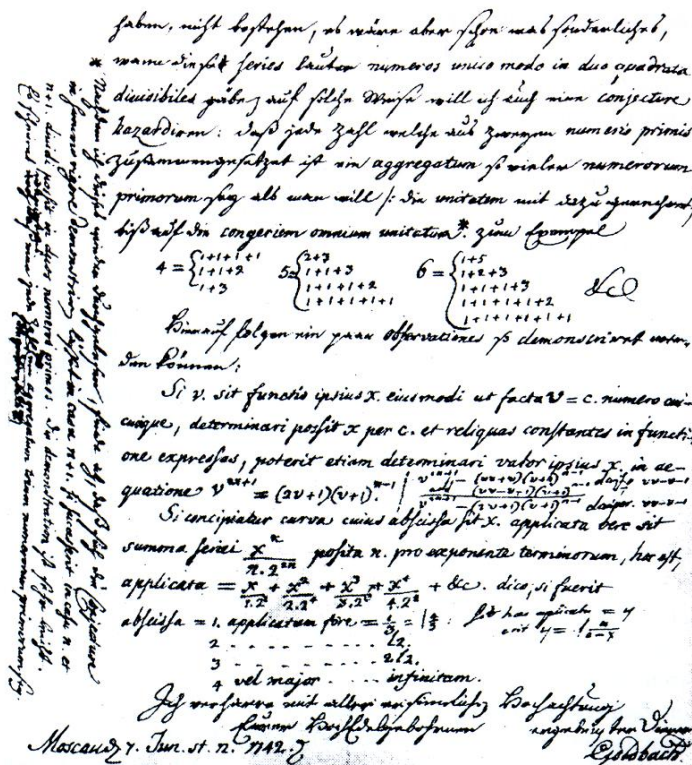 haben, nicht bestehen, es wäre aber schon was sonderliches,
wenn diese series lauter numeros unico modo in duo quadrata
divisibiles gäbe, auf solche Weise will ich auch eine conjecture
hazardiren: daß jede Zahl welche aus zweyen numeris primis
zusammengesetzet ist ein aggregatum so vieler numerorum
primorum sey als man will /: die unitatem mit dazu gerechnet
biß auf die congeriem omnium unitatum* zum Exempel
4 = { 1+1+1+1 5 = { 2+3 6 = { 1+5
1+1+2 1+1+3 1+2+3
1+3 1+1+1+2 1+1+1+3 &c
1+1+1+1+1 1+1+1+1+2
1+1+1+1+1+1
Hierauf folgen ein paar observationes so demonstriret wer-
den können:
Si v. sit functio ipsius x. eiusmodi ut facta v = c. numero cui-
cunque, determinari possit x per c. et reliquas constantes in functi-
one expressas, poterit etiam determinari valor ipsius x. in ae-
quatione v^{2n+1} = (2v+1)(v+1)^{n-1}
Si concipiatur curva cuius abscissa sit x. applicata vero sit
summa seriei x^n / n.2^{2n} posita n. pro exponente terminorum, hoc est,
applicata = x/1.2^2 + x^2/2.2^4 + x^3/3.2^6 + x^4/4.2^8 + &c. dico, si fuerit
abscissa = 1. applicatam fore = l 4/3
2 . . . . . . . . . l2.
3 . . . . . . . . . 2l2.
4 vel major . . . . infinitam.
Ich verharre mit aller Hochachtung
Eurer Hochedelgebohrnen ergebenster Diener
Moscau d. 7. Jun. st. n. 1742. Goldbach.
* Nachdem ich dieses wieder durchgelesen, finde ich, daß sich die Conjecture
in summo rigore demonstriren lässet in casu n+1. si successerit in casu n. et
n+1. dividi possit in duos numeros primos. Die demonstration ist sehr leicht.
Es scheinet wenigstens, daß eine jede Zahl ein aggregatum trium numerorum primorum sey.